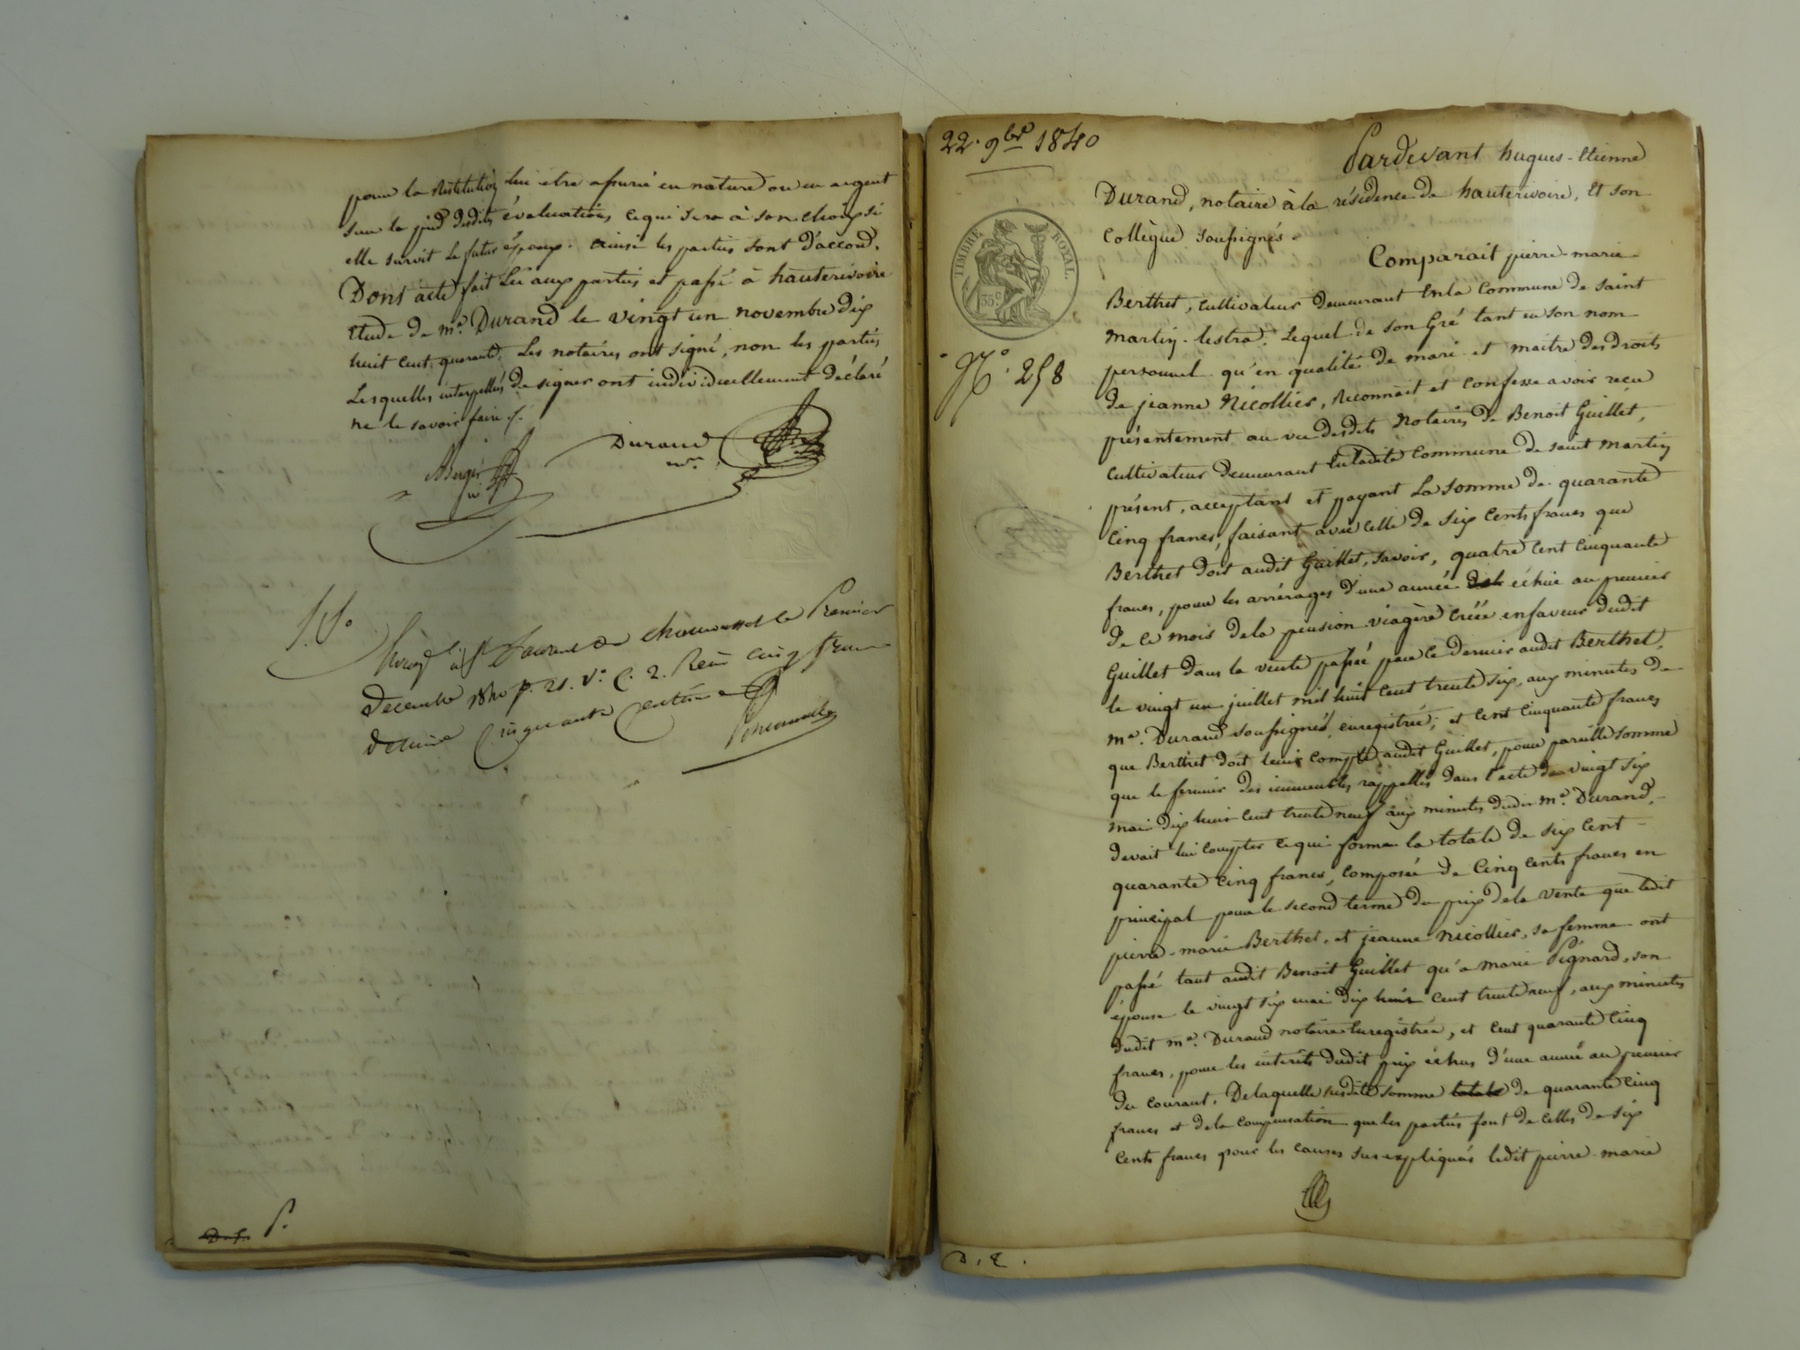 pour la restitution lui être assurée en nature ou en argent
sur le pied desdites évaluations, ce qui sera à son choix si
elle survit le futur époux. ainsi les parties sont d'accord.
Dont acte fait lu aux parties et passé à hauterivoire
étude de me. Durand le vingt un novembre dix
huit cent quarante. Les notaires ont signé, non les parties
Lesquelles interpellées de signer ont individuellement déclaré
ne le savoir faire /.
Durand
nre.
à St Laurent de chamousset le Premier
Décembre 1840 f. 21. Vo. C. 2. Reçu cinq francs
décime cinquante centimes
D.
22. 9bre 1840
Pardevant hugues-Etienne
Durand, notaire à la résidence de hauterivoire, Et son
Collègue soussignés.
TIMBRE ROYAL.
35c
No. 258
Comparait pierre-marie
Berthet, cultivateur demeurant En la Commune de Saint
Martin-lestra; Lequel de son Gré tant en son nom
personnel qu'en qualité de mari et maitre des droits
de jeanne Nicollier, Reconnait et confesse avoir reçu
présentement au vu desdits Notaires de Benoit Guillet,
Cultivateur demeurant En ladite Commune de saint Martin
présent, acceptant et payant La somme de quarante
Cinq francs, faisant avec celle de Six Cents francs que
Berthet doit audit Guillet, savoir, quatre Cent Cinquante
francs, pour les arrérages d'une année échue au premier
de ce mois de la pension viagère créée en faveur dudit
Guillet dans la vente passée par ce dernier audit Berthet,
le vingt un juillet mil huit Cent trente six, aux minutes de
me. Durand soussigné, enregistrée; et Cent Cinquante francs
que Berthet doit tenir compte audit Guillet, pour pareille somme
que le fermier des immeubles rappellés dans l'acte du vingt six
mai dix huit Cent trente neuf aux minutes dudit me. Durand,
devait lui Compter ce qui forme la totale de six Cent
quarante Cinq francs, Composée de Cinq Cents francs en
principal pour le second terme du prix de la vente que ledit
pierre-marie Berthet, et jeanne Nicollier, sa femme ont
passé tant audit Benoit Guillet qu'a marie Pignard, son
épouse le vingt six mai dix huit Cent trente neuf, aux minutes
dudit me. Durand notaire Enregistrée, et Cent quarante Cinq
francs, pour les intérêts dudit prix échus d'une année au premier
du courant. De laquelle susdite somme totale de quarante Cinq
francs et de la compensation que les parties font de Celles de six
Cents francs pour les causes sus-expliquées ledit pierre-marie
D. E.